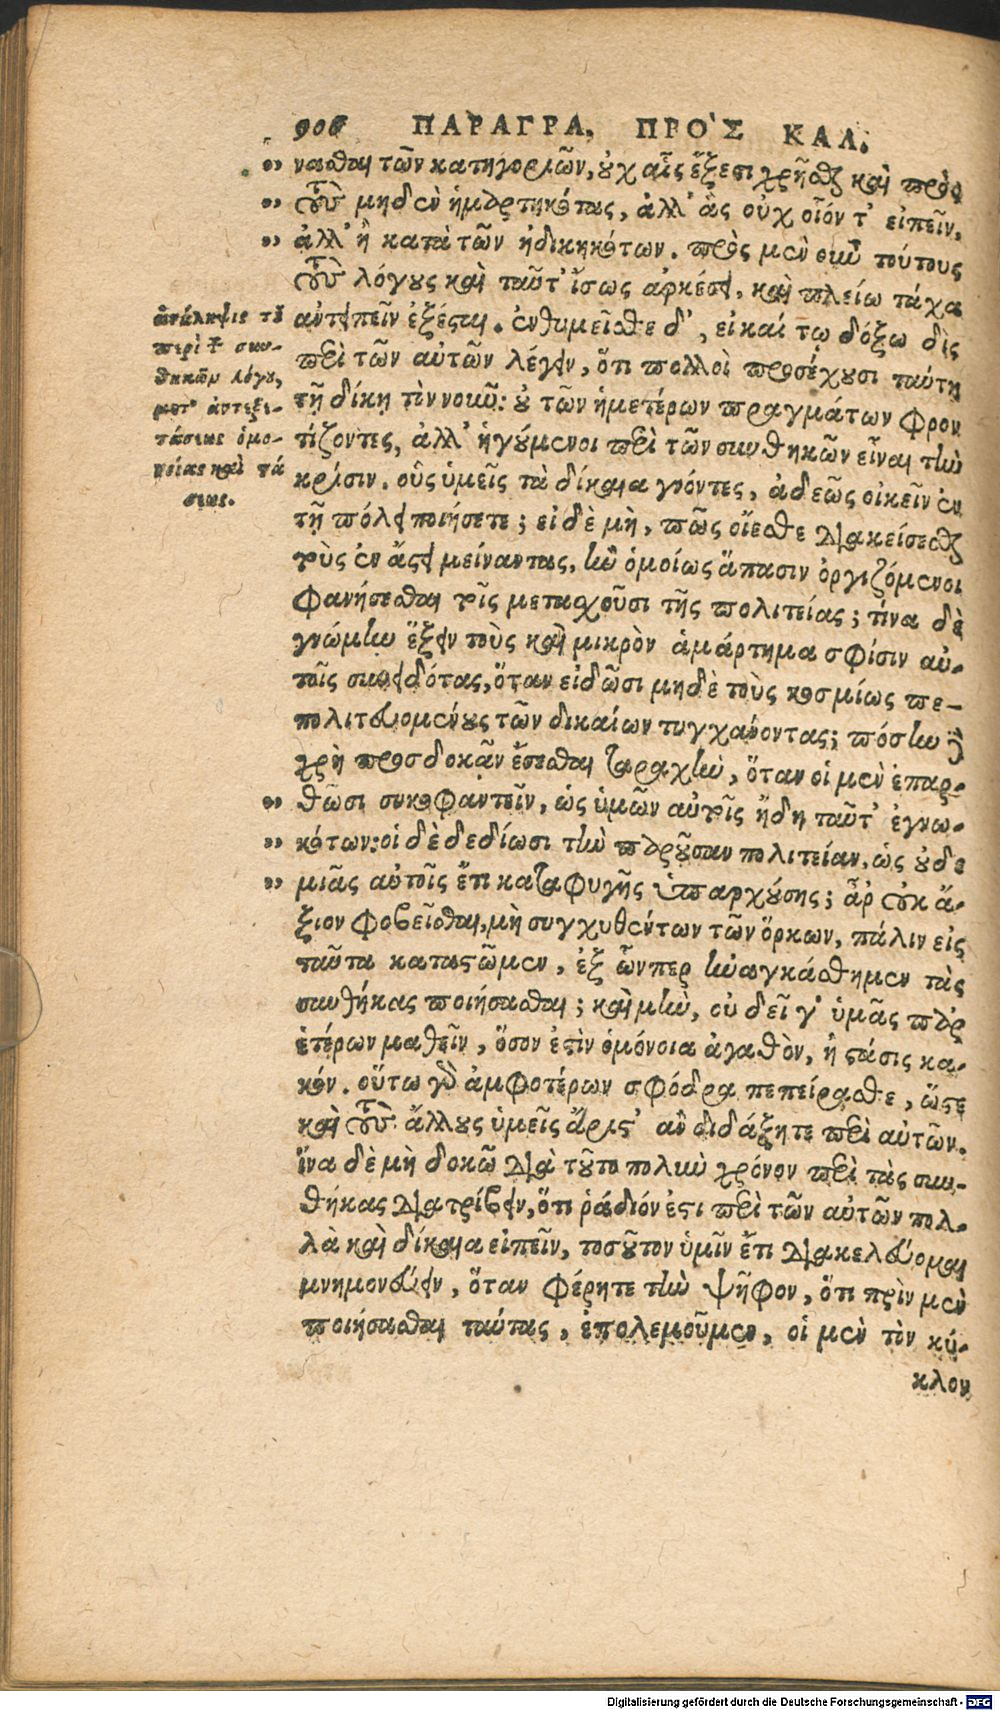 906 ΠΑΡΑΓΡΑ. ΠΡΟ'Σ ΚΑΛ.
νασθαι τῶν κατηγοριῶν, οὐχ αἷς ἔξεστι χρῆσθαι καὶ πρὸς
τοὺς μηδὲν ἡμαρτηκότας, ἀλλ' ἃς οὐχ οἷόν τ' εἰπεῖν,
ἀλλ' ἢ κατὰ τῶν ἠδικηκότων. πρὸς μὲν οὖν τούτους
τοὺς λόγους καὶ ταῦτ' ἴσως ἀρκέσει, καὶ πλείω τάχα
ἀντειπεῖν ἐξέσται. ἐνθυμεῖσθε δ', εἰ καί τῳ δόξω δὶς
περὶ τῶν αὐτῶν λέγειν, ὅτι πολλοὶ προσέχουσι ταύτῃ
τῇ δίκῃ τὸν νοῦν: οὐ τῶν ἡμετέρων πραγμάτων φρον
τίζοντες, ἀλλ' ἡγούμενοι περὶ τῶν συνθηκῶν εἶναι τὴν
κρίσιν. οὓς ὑμεῖς τὰ δίκαια γνόντες, ἀδεῶς οἰκεῖν ἐν
τῇ πόλει ποιήσετε; εἰ δὲ μὴ, πῶς οἴεσθε διακείσεσθαι
τοὺς ἐν ἄστει μείναντας, ἢν ὁμοίως ἅπασιν ὀργιζόμενοι
φανήσεσθαι τοῖς μετασχοῦσι τῆς πολιτείας; τίνα δὲ
γνώμην ἕξειν τοὺς καὶ μικρὸν ἁμάρτημα σφίσιν αὐ-
τοῖς συνειδότας, ὅταν εἰδῶσι μηδὲ τοὺς κοσμίως πε-
πολιτευομένους τῶν δικαίων τυγχάνοντας; πόσην δὲ
χρὴ προσδοκᾶν ἔσεσθαι ταραχὴν, ὅταν οἱ μὲν ἐπαρ-
θῶσι συκοφαντεῖν, ὡς ὑμῶν αὐτοῖς ἤδη ταῦτ' ἐγνω-
κότων: οἱ δὲ δεδίωσι τὴν παροῦσαν πολιτείαν, ὡς οὐδε
μιᾶς αὐτοῖς ἔτι καταφυγῆς ὑπαρχούσης; ἆρ οὐκ ἄ-
ξιον φοβεῖσθαι, μὴ συγχυθέντων τῶν ὅρκων, πάλιν εἰς
ταῦτα καταστῶμεν, ἐξ ὧνπερ ἠναγκάσθημεν τὰς
συνθήκας ποιήσασθαι; καὶ μὴν, οὐ δεῖ γ' ὑμᾶς παρ
ἑτέρων μαθεῖν, ὅσον ἐστὶν ὁμόνοια ἀγαθὸν, ἢ στάσις κα-
κόν. οὕτω γὰρ ἀμφοτέρων σφόδρα πεπείρασθε, ὥστε
καὶ τοὺς ἄλλους ὑμεῖς ἄριστ' ἂν διδάξητε περὶ αὐτῶν.
ἵνα δὲ μὴ δοκῶ διὰ τοῦτο πολὺν χρόνον περὶ τὰς συν-
θήκας διατρίβειν, ὅτι ῥᾴδιόν ἐστι περὶ τῶν αὐτῶν πολ-
λὰ καὶ δίκαια εἰπεῖν, τοσοῦτον ὑμῖν ἔτι διακελεύομαι
μνημονεύειν, ὅταν φέρητε τὴν ψῆφον, ὅτι πρὶν μὲν
ποιήσασθαι ταύτας, ἐπολεμοῦμεν, οἱ μὲν τὸν κύ-
κλον
ἀνάληψις τοῦ
περὶ τ συν-
θηκῶν λόγου,
μετ' ἀντεξε-
τάσεως ὁμο-
νοίας καὶ στά
σεως.
Digitalisierung gefördert durch die Deutsche Forschungsgemeinschaft - DFG